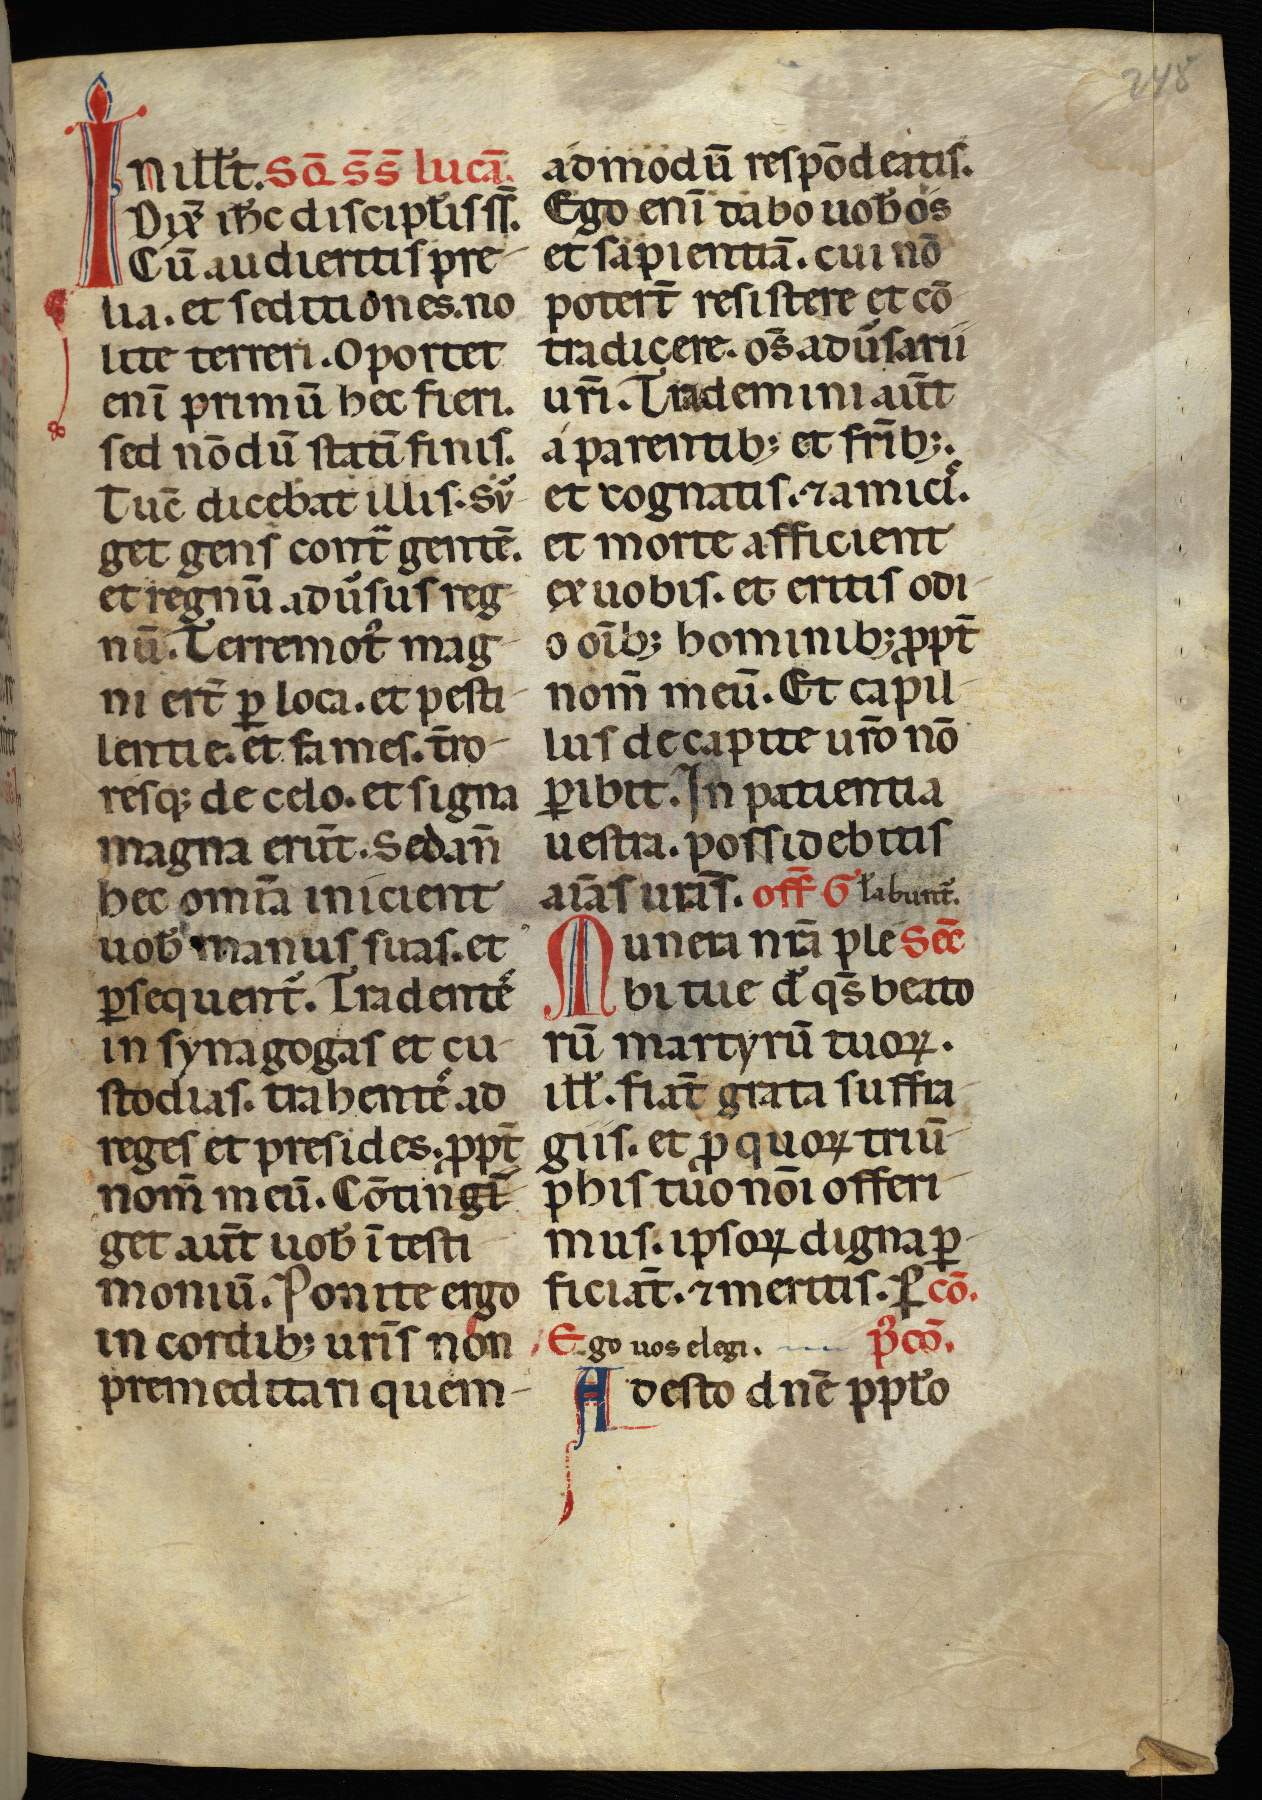 248
In illt̄. SQ̄ S̄S̄ lucā.
Dix̄ ih̄c discipl'is ss̄.
Cū audieritis pre-
lia. et seditiones. no
lite terreri. Oportet
enī primū hec fieri.
sed nōdū statī finis.
Tuc̄ dicebat illis. Sur-
get gens cont̄ gentē.
et regnū adūsus reg-
nū. Terremot᷒ mag-
ni ert̄ ꝑ loca. et pesti-
lentie. et fames. t̄ro-
resq; de celo. et signa
magna erūt. Sed an̄
hec omīa inicient
uob̄ manus suas. et
ꝑsequent̄. Tradente᷒
in synagogas et cu-
stodias. trahente᷒ ad
reges et presides. ꝓpt̄
nom̄ meū. Cōtingī-
get aūt uob̄ ī testi
moniū. Ponite ergo
in cordib; ur̄is non
premeditari quem-
admodū respōdeatis.
Ego enī dabo uob̄ os
et sapientiā. cui nō
potert̄ resistere et cō-
tradicere. os̄ adūsarii
ur̄i. Trademini aūt
a parentib; et fr̄ib;.
et cognatis. ⁊ amici᷒.
et morte afficient
ex uobis. et eritis odi-
o oīb; hominib; ꝓpt̄
nom̄ meū. Et capil-
lus de capite ur̄o nō
ꝑibit. In patientia
uestra. possidebitis
aīas ur̄as. off̄ Gl'abunt̄.
Munera nr̄a ple Sec̄
bi tue d' qs̄ beato
rū martyrū tuoꝝ.
ill'. fiat̄ grata suffra-
giis. et ꝓ quoꝝ triū-
phis tuo nōi offeri-
mus. ipsoꝝ digna ꝑ-
ficiat̄. ⁊ meritis. P̲ cō.
Ego uos elegi. p᷒cō.
Adesto dn̄e ppl'o